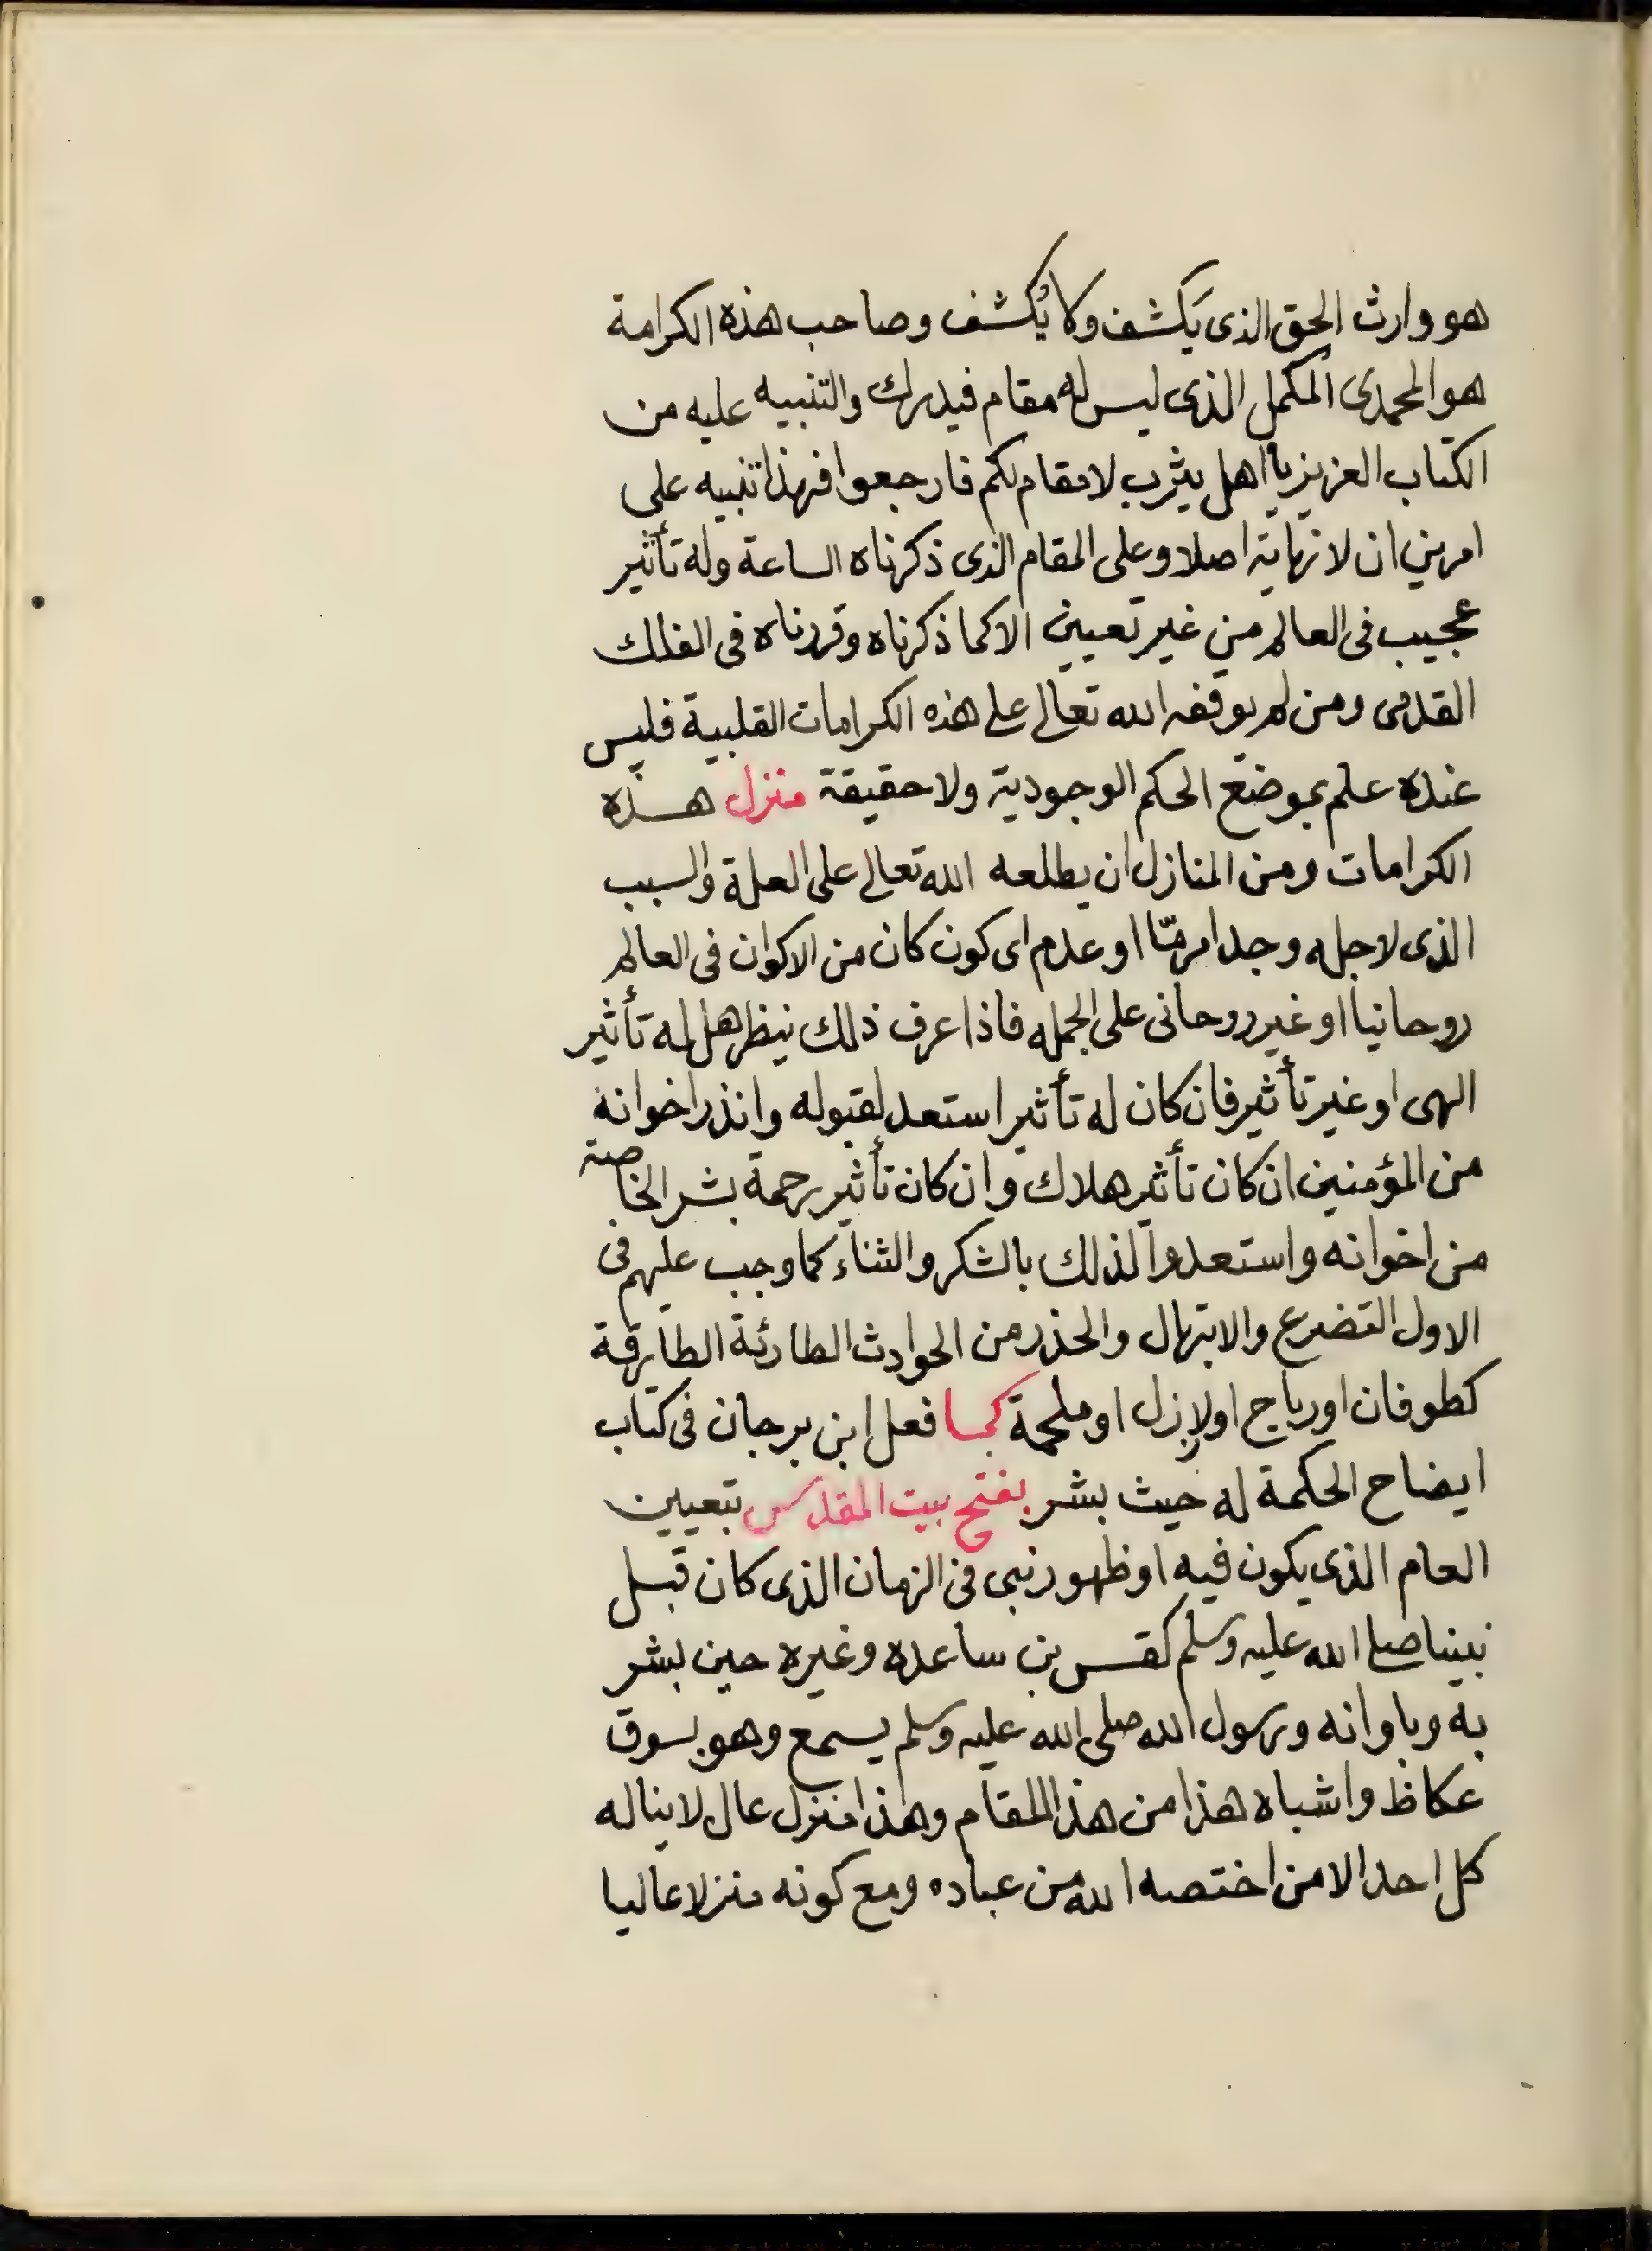 هو وارث الحق الذى يَكشف ولا يُكشف وصاحب هذه الكرامة
هو المحمدى المكمل الذى ليس له مقام فيدرك والتنبيه عليه من
الكتاب العزيز يا اهل يثرب لا مقام لكم فارجعوا فهذا تنبيه على
امرين ان لا نهاية اصلا وعلى المقام الذى ذكرناه الساعة وله تأثير
عجيب فى العالم من غير تعيين الا كما ذكرناه وقررناه فى الفلك
القدمى ومن لم يوقفه الله تعالى على هذه الكرامات القلبية فليس
عنده علم بموضع الحكم الوجودية ولا حقيقة منزل هذه
الكرامات ومن المنازل ان يطلعه الله تعالى على العلة والسبب
الذى لاجله وجد امر مّا او عدم اى كون كان من الاكوان فى العالم
روحانيا او غير روحانى على الجمله فاذا عرف ذلك ينظر هل له تأثير
الهى او غير تأثير فان كان له تأثير استعد لقبوله وانذر اخوانه
من المؤمنين ان كان تأثير هلاك وان كان تأثير رحمة بشر الخاصة
من اخوانه واستعدوا لذلك بالشكر والثناء كما وجب عليهم فى
الاول التضرع والابتهال والحذر من الحوادث الطارئة الطارقة
كطوفان او رياح او لازل او ملحمة كما فعل ابن برجان فى كتاب
ايضاح الحكمة له حيث بشر بفتح بيت المقدس بتعيين
العام الذى يكون فيه او ظهور نبى فى الزمان الذى كان قبل
نبينا صلى الله عليه وسلم كقس بن ساعده وغيره حين بشر
به وباوانه ورسول الله صلى الله عليه وسلم يسمع وهو بسوق
عكاظ واشباه هذا من هذا المقام وهذا منزل عال لا يناله
كل احد الا من اختصه الله من عباده ومع كونه منزلا عاليا